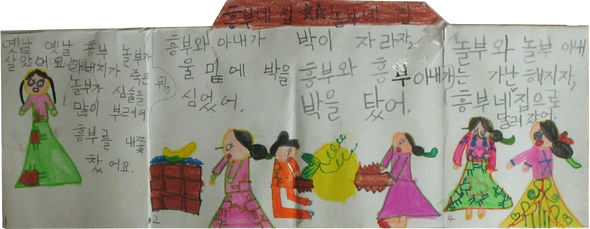 흥부네 집 놀부네 집
옛날 옛날 흥부 놀부가
살았어요. 아버지가 죽은 뒤,
놀부가 심술을
많이 부려서
흥부를 내쫓
았어요.
흥부와 아내가
울 밑에 박을
심었어.
박이 자라자,
흥부와 흥부 아내는
박을 탔어.
놀부와 놀부 아내
가 가난해지자,
흥부네 집으로
달려갔어.
1
2
4